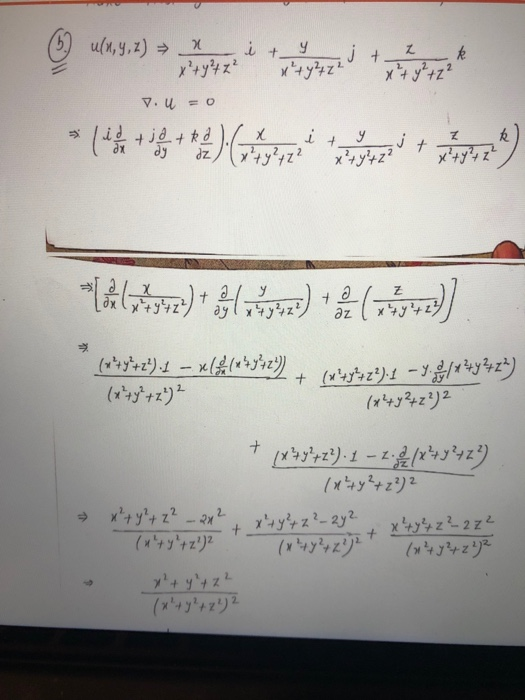 5. u(x,y,z) ⇒ x/(x²+y²+z²) i + y/(x²+y²+z²) j + z/(x²+y²+z²) k
∇. u = 0
⇒ (i ∂/∂x + j ∂/∂y + k ∂/∂z).(x/(x²+y²+z²) i + y/(x²+y²+z²) j + z/(x²+y²+z²) k)
⇒ [∂/∂x (x/(x²+y²+z²)) + ∂/∂y (y/(x²+y²+z²)) + ∂/∂z (z/(x²+y²+z²))]
⇒ ((x²+y²+z²).1 - x(∂/∂x (x²+y²+z²)))/(x²+y²+z²)² + ((x²+y²+z²).1 - y.∂/∂y (x²+y²+z²))/(x²+y²+z²)²
+ ((x²+y²+z²).1 - z.∂/∂z (x²+y²+z²))/(x²+y²+z²)²
⇒ (x²+y²+z² - 2x²)/(x²+y²+z²)² + (x²+y²+z² - 2y²)/(x²+y²+z²)² + (x²+y²+z² - 2z²)/(x²+y²+z²)²
⇒ (x²+y²+z²)/(x²+y²+z²)²